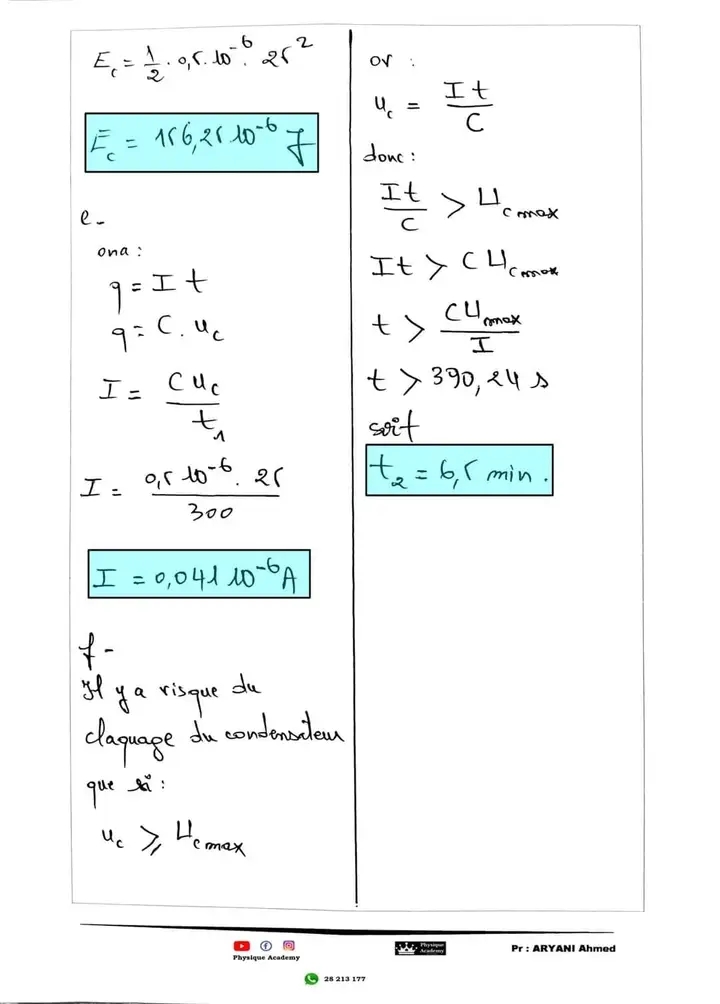 E_c = 1/2 · 0,5 · 10^-6 · 25^2
E_c = 156,25 10^-6 J
e-
on a :
q = I t
q = C . u_c
I = C u_c / t_1
I = 0,5 10^-6 . 25 / 300
I = 0,041 10^-6 A
f-
Il y a risque du
claquage du condensateur
que si :
u_c ⩾ U_c max
or :
u_c = I t / C
donc :
I t / C > U_c max
I t > C U_c max
t > C U_max / I
t > 390,24 s
soit
t_2 = 6,5 min.
Physique Academy
Physique
Academy
Pr : ARYANI Ahmed
28 213 177